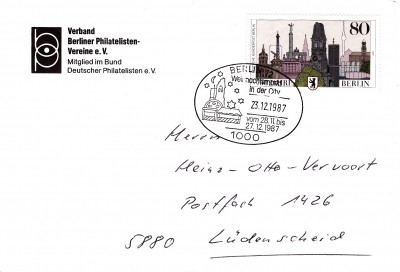 Verband
Berliner Philatelisten-
Vereine e.V.
Mitglied im Bund
Deutscher Philatelisten e.V.
80
BERLIN
BERLIN
Weihnachtsmarkt
in der City
23.12.1987
vom 28.11. bis
27.12.1987
1000
Herrn
Heinz-Otto-Vervoort
Postfach 1426
5880 Lüdenscheid